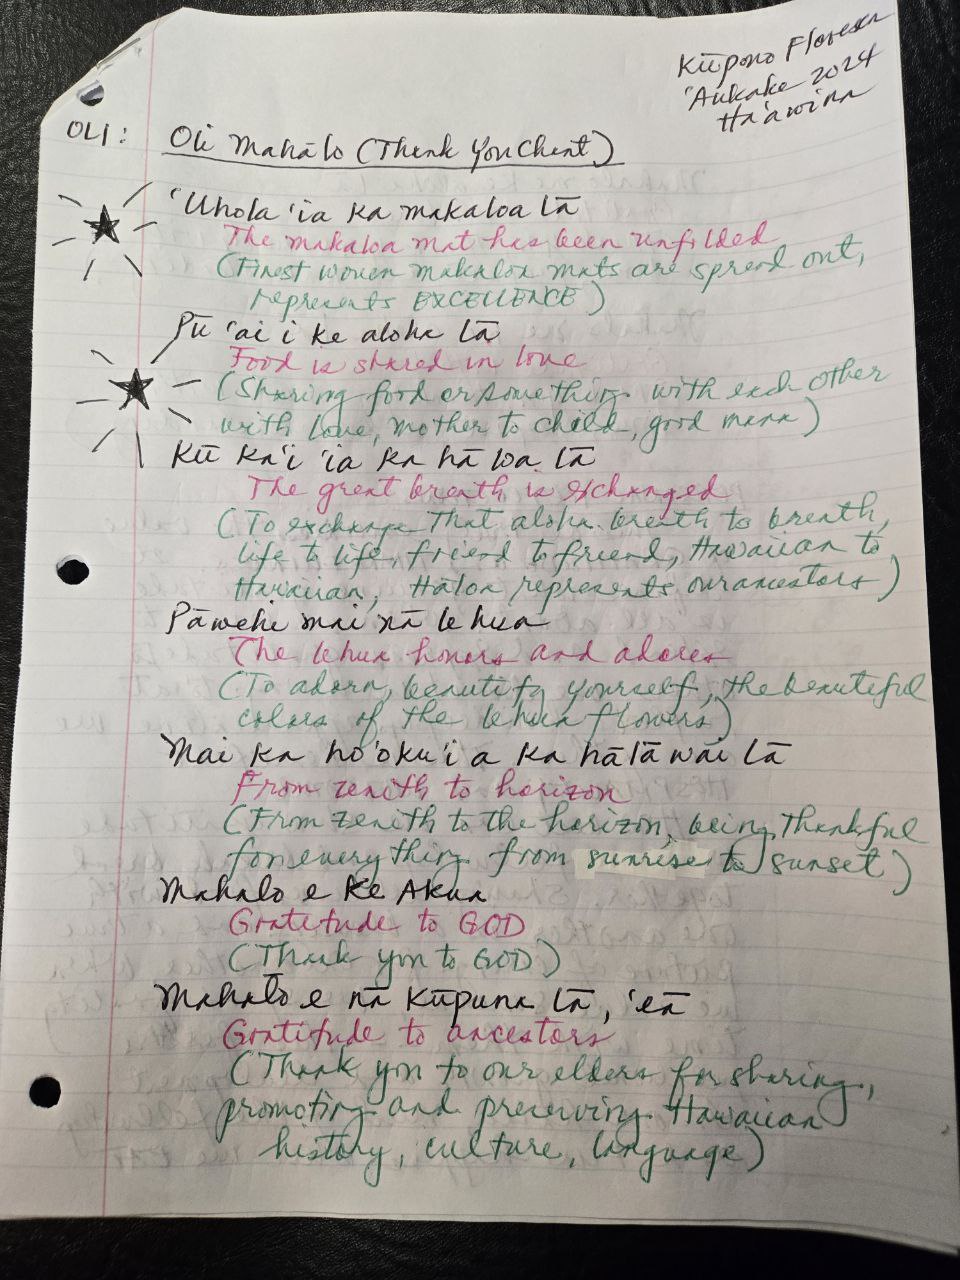 Kūpono Floresca
'Aukake 2024
Ha'awina
OLI: Oli Mahālo (Thank You Chant)
'Uhola 'ia ka makaloa Lā
The makaloa mat has been unfolded
(Finest woven makaloa mats are spread out,
represents EXCELLENCE)
Pū 'ai i ke aloha Lā
Food is shared in love
(Sharing food or something with each other
with love, mother to child, good mana)
Kū ka'i 'ia ka hā loa Lā
The great breath is exchanged
(To exchange that aloha breath to breath,
life to life, friend to friend, Hawaiian to
Hawaiian, Hāloa represents our ancestors)
Pāwehi mai nā lehua
The lehua honors and adores
(To adorn, beautify yourself, the beautiful
colors of the lehua flowers)
Mai ka ho'oku'i a ka hālāwāi Lā
From zenith to horizon
(From zenith to the horizon, being thankful
for everything from sunrise to sunset)
Mahalo e Ke Akua
Gratitude to GOD
(Thank you to GOD)
Mahalo e nā Kūpuna Lā, 'eā
Gratitude to ancestors
(Thank you to our elders for sharing,
promoting and preserving Hawaiian
history, culture, language)